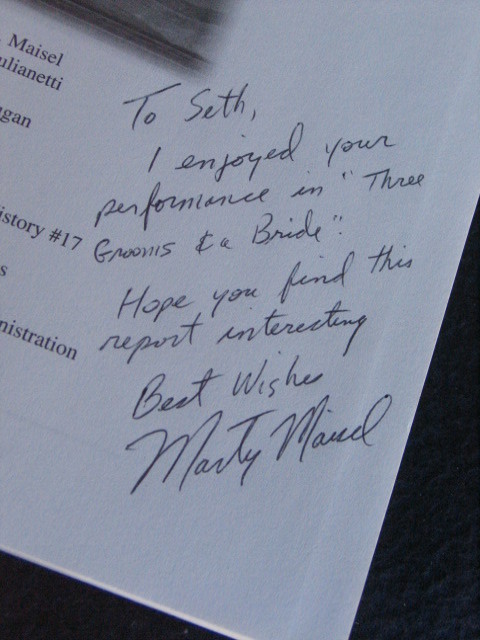 Maisel
ulianetti
gan
istory #17
s
nistration
To Seth,
I enjoyed your
performance in "Three
Grooms & a Bride".
Hope you find this
report interesting
Best Wishes
Marty Maisel